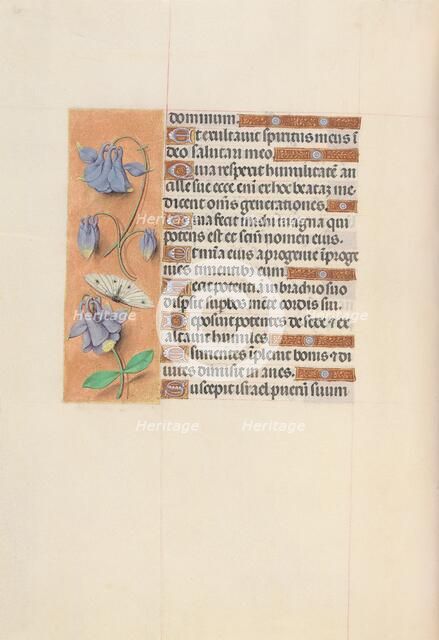 dominum.
Et exultavit spiritus meus i
deo salutari meo.
Quia respexit humilitatē an
cille sue ecce eni ex hoc beatā me
dicent omīs generationes.
Quia fecit michi magna qui
potens est et scm̄ nomen eius.
Et mīa eius a progenie ī proge
nies timentibus eum.
Fecit potentiā in brachio suo
dispsit supbos mēte cordis sui.
Deposuit potentes de sede et ex
altavit humiles.
Esurientes īplevit bonis et di
vites dimisit inanes.
Suscepit israel puerū suum
Heritage
Heritage
Heritage
Heritage
Heritage
Heritage